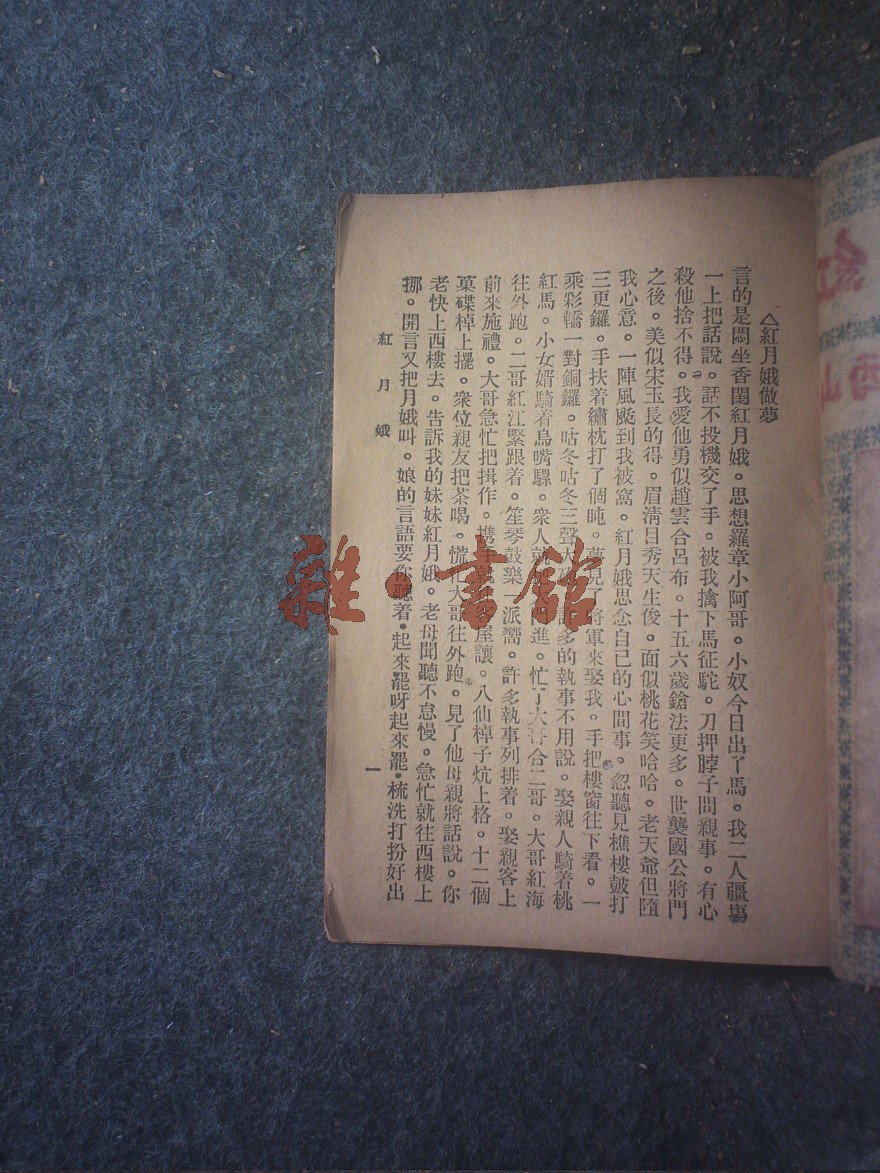 △紅月娥做夢
言的是悶坐香閨紅月娥。思想羅章小阿哥。小奴今日出了馬。我二人疆塲
一上把話說。話不投機交了手。被我擒下馬征駝。刀押脖子問親事。有心
殺他捨不得。我愛他勇似趙雲合呂布。十五六歲鎗法更多。世襲國公將門
之後。美似宋玉長的得。眉清目秀天生俊。面似桃花笑哈哈。老天爺但隨
我心意。一陣風颳到我被窩。紅月娥思念自己的心間事。忽聽見樵樓鼓打
三更鑼。手扶着繡枕打了個盹。夢見了將軍來娶我。手把樓窗往下看。一
乘彩轎一對銅鑼。咕冬咕冬三聲大 多的執事不用說。娶親人騎着桃
紅馬。小女婿騎着烏嘴騾。衆人就 進。忙了大哥合二哥。大哥紅海
往外跑。二哥紅江緊跟着。笙琴鼓樂一派嚮。許多執事列排着。娶親客上
前來施禮。大哥急忙把揖作。携手就 屋讓。八仙棹子炕上格。十二個
菓碟棹上擺。衆位親友把茶喝。慌忙大哥往外跑。見了他母親將話說。你
老快上西樓去。告訴我的妹妹紅月娥。老母聞聽不怠慢。急忙就往西樓上
挪。開言又把月娥叫。娘的言語要你聽着。起來罷呀起來罷。梳洗打扮好出
紅月娥
一
紅
西山
雜·書館